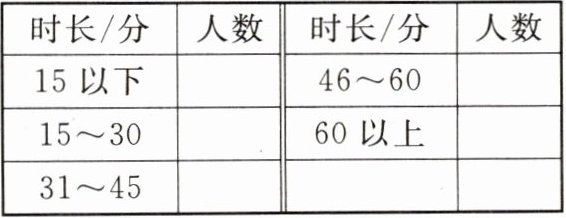 时长/分 人数 时长/分 人数
15 以下 46～60
15～30 60 以上
31～45